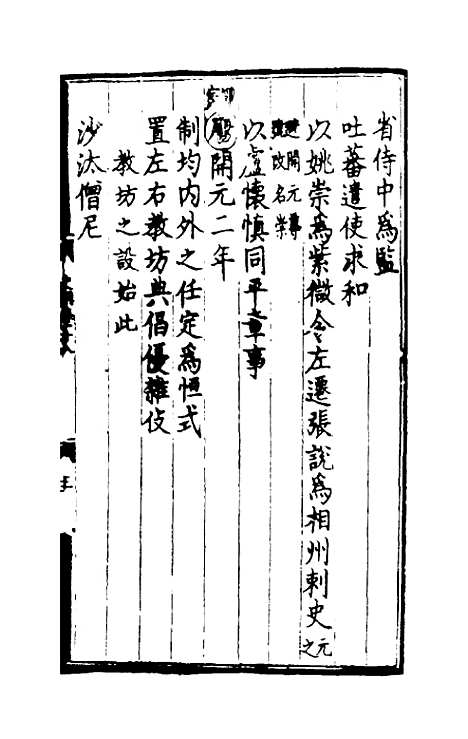 省侍中為監
吐蕃遣使求和
以姚崇為紫微令左遷張說為相州刺史
元之
避開元尊
號改名崇
以盧懷慎同平章事
開元二年
制均內外之任定為恒式
置左右教坊典倡優雜伎
教坊之設始此
沙汰僧尼